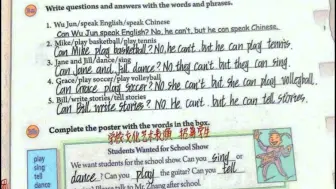 Write questions and answers with the words and phrases.
1. Wu Jun/speak English/speak Chinese
Can Wu Jun speak English? No, he can't, but he can speak Chinese.
2. Mike/play basketball/play tennis
Can Mike play basketball? No, he can't. but he can play tennis.
3. Jane and Jill/dance/sing
Can Jane and Jill dance? No they can't. but they can sing.
4. Grace/play soccer/play volleyball
Can Grace play soccer? No she can't but she can play volleyball.
5. Bill/write stories/tell stories
Can Bill write stories? NO He can't. but he can tell stories.
Complete the poster with the words in the box.
学校文化艺术表演 招募学生
play
sing
tell
dance
Students Wanted for School Show
We want students for the school show. Can you sing or
dance? Can you play the guitar? Can you tell
Mr. Zhang after school.